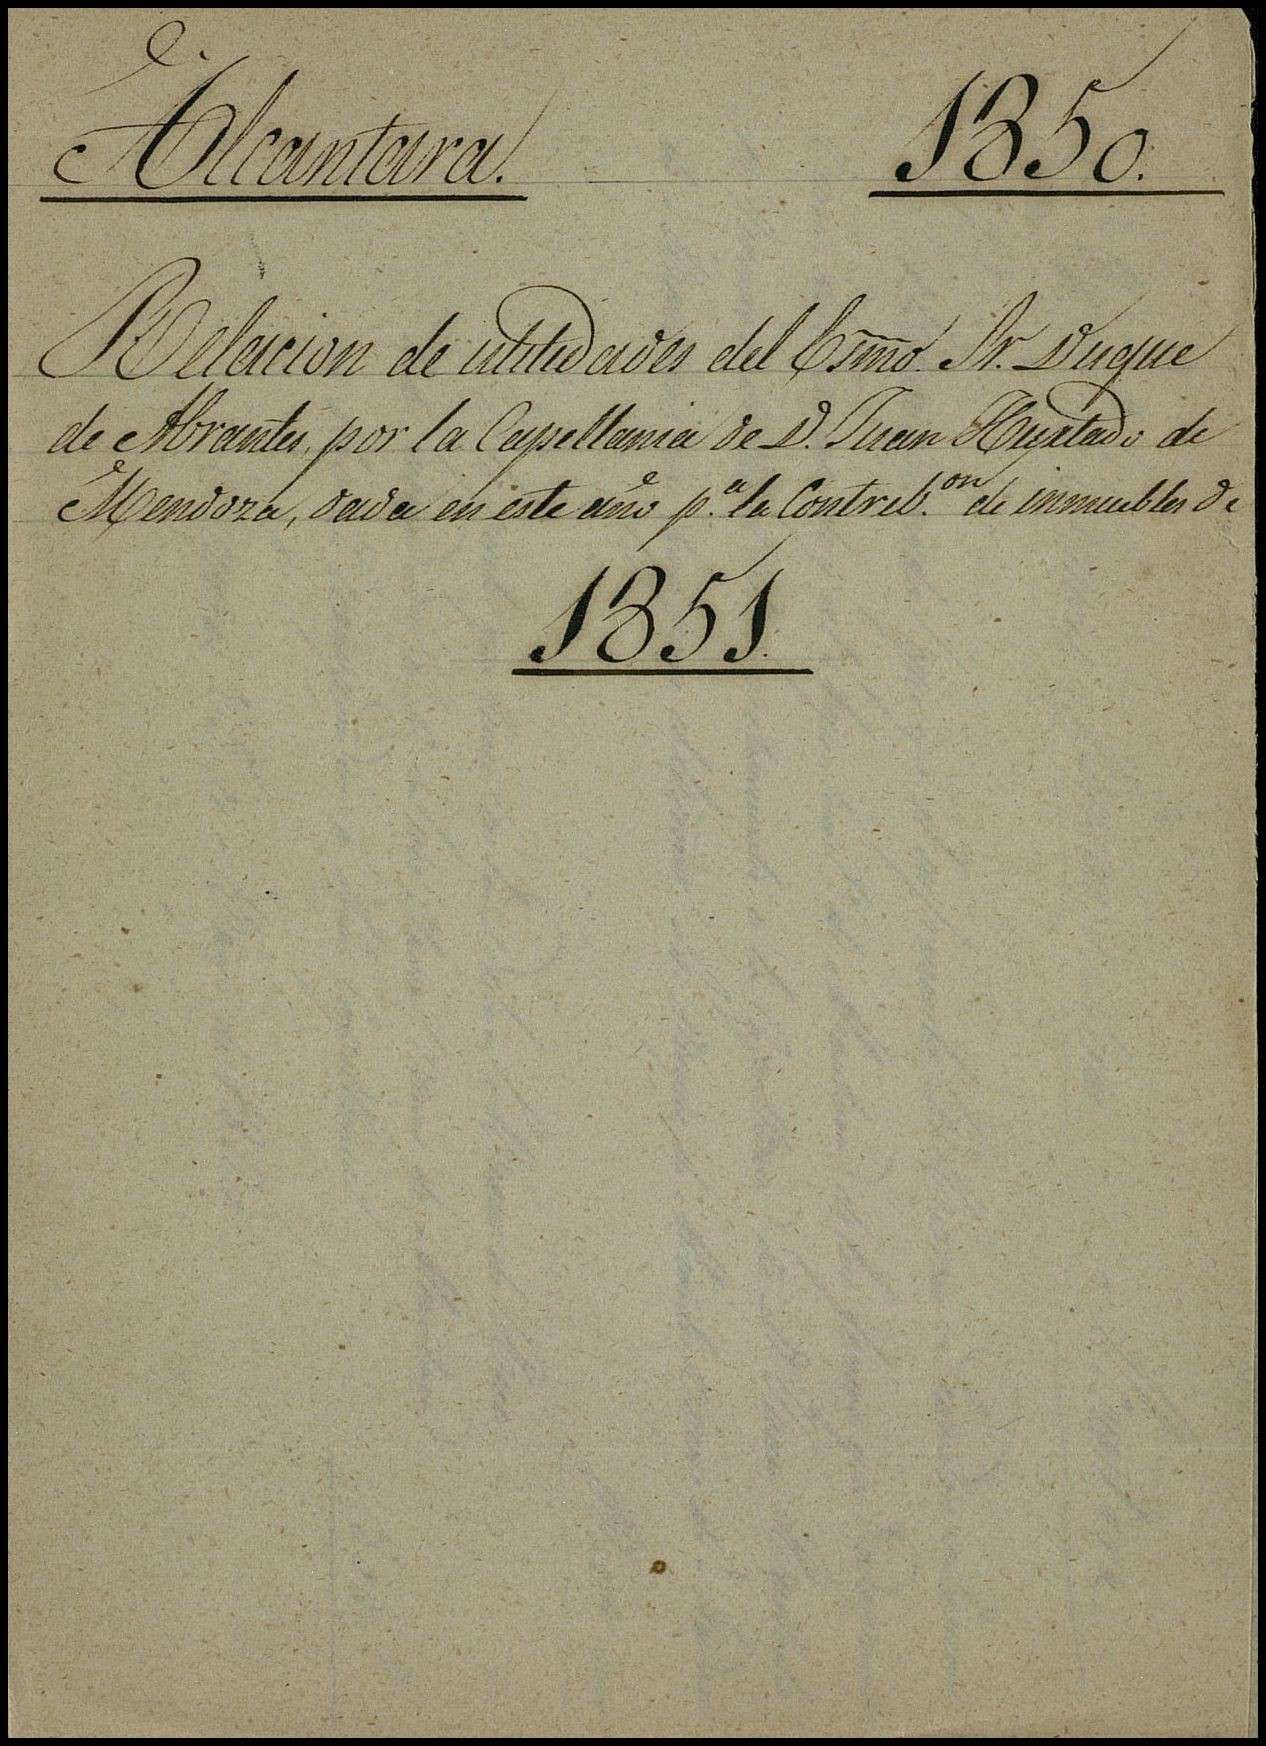 Alcantara. 1850.
Relacion de utilidades del Esmõ. Sr. Duque
de Abrantes, por la Capellania de D. Juan Hurtado de
Mendoza, dada en este año p.ª la Contrib.on de inmuebles de
1851.